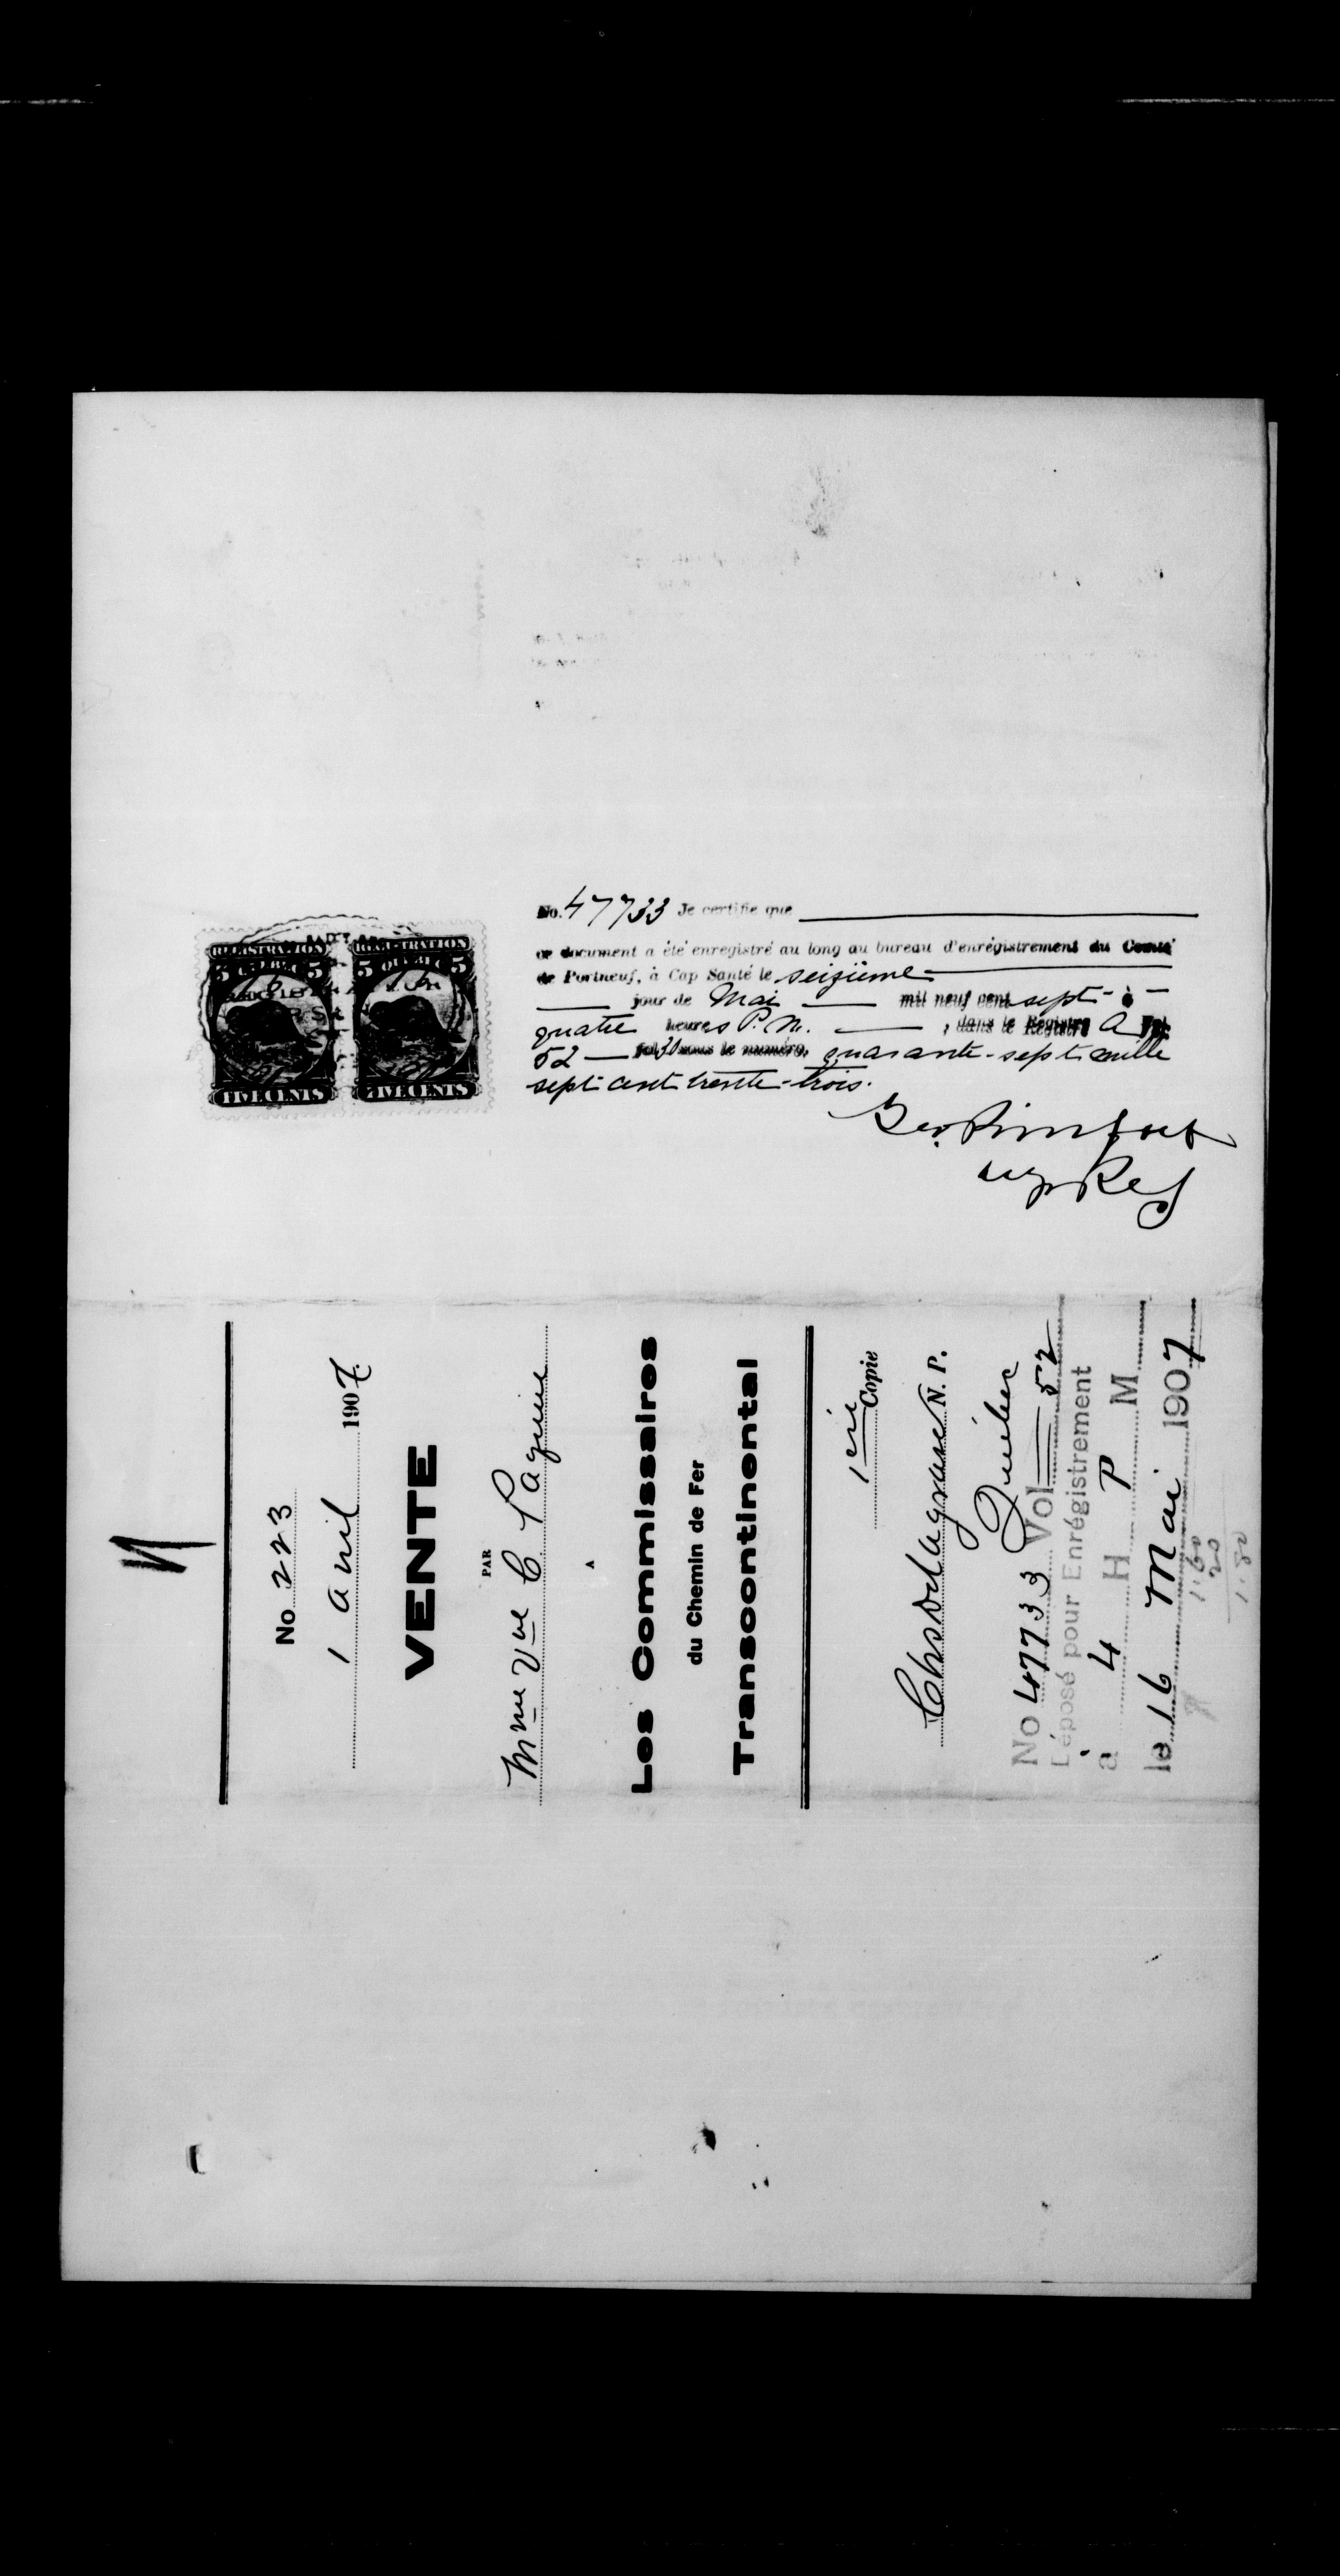 No. 47733 Je certifie que
ce document a été enregistré au long au bureau d'enrégistrement du Comté
de Portneuf, à Cap Santé le seizième
jour de Mai mil neuf cent sept à
quatre heures P. M. , dans le Registre A Vol.
52 fol 30 sous le numéro, quarante-sept mille
sept cent trente-trois.
Reg
REGISTRATION
5 QUEBEC 5
FIVE CENTS
REGISTRATION
5 QUEBEC 5
FIVE CENTS
No 223
1 Avril 1907.
VENTE
PAR
Mme Vve C Paquin
A
Les Commissaires
du Chemin de Fer
Transcontinental
1ère Copie
N. P.
Québec
No 47733 Vol 52
Déposé pour Enrégistrement
à 4 H P M
le 16 Mai 1907
1.60
20
1.80